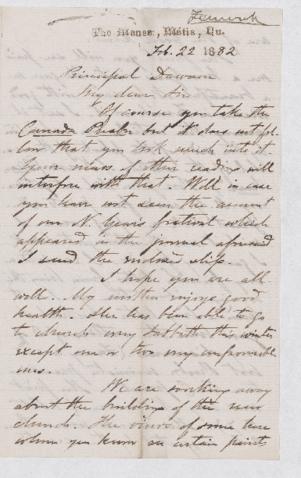 Fenwick
The Manse, Métis, Qu.
Feb. 22 1882
Principal Dawson
My dear Sir
Of course you take the
Canada but it does not fol-
low that you look much into it
Your mass of other reading will
interfere with that. Well in case
you have not seen the account
of our N. Year's festival which
appeared in the journal aforesaid
I send the enclosed slip.
I hope you are all
well. My mother enjoys good
health. She has been able to go
to church every Sabbath this winter
except one or two very unfavorable
ones.
We are working away
about the building of the new
church. The views of some here
whom you know on certain points